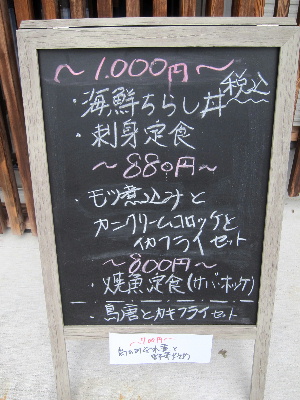 ～1.000円～
税込
・海鮮ちらし丼
・刺身定食
～880円～
・モツ煮込みと
カニクリームコロッケと
イカフライセット
～800円～
・焼魚定食(サバ・ホッケ)
・鳥唐とカキフライセット